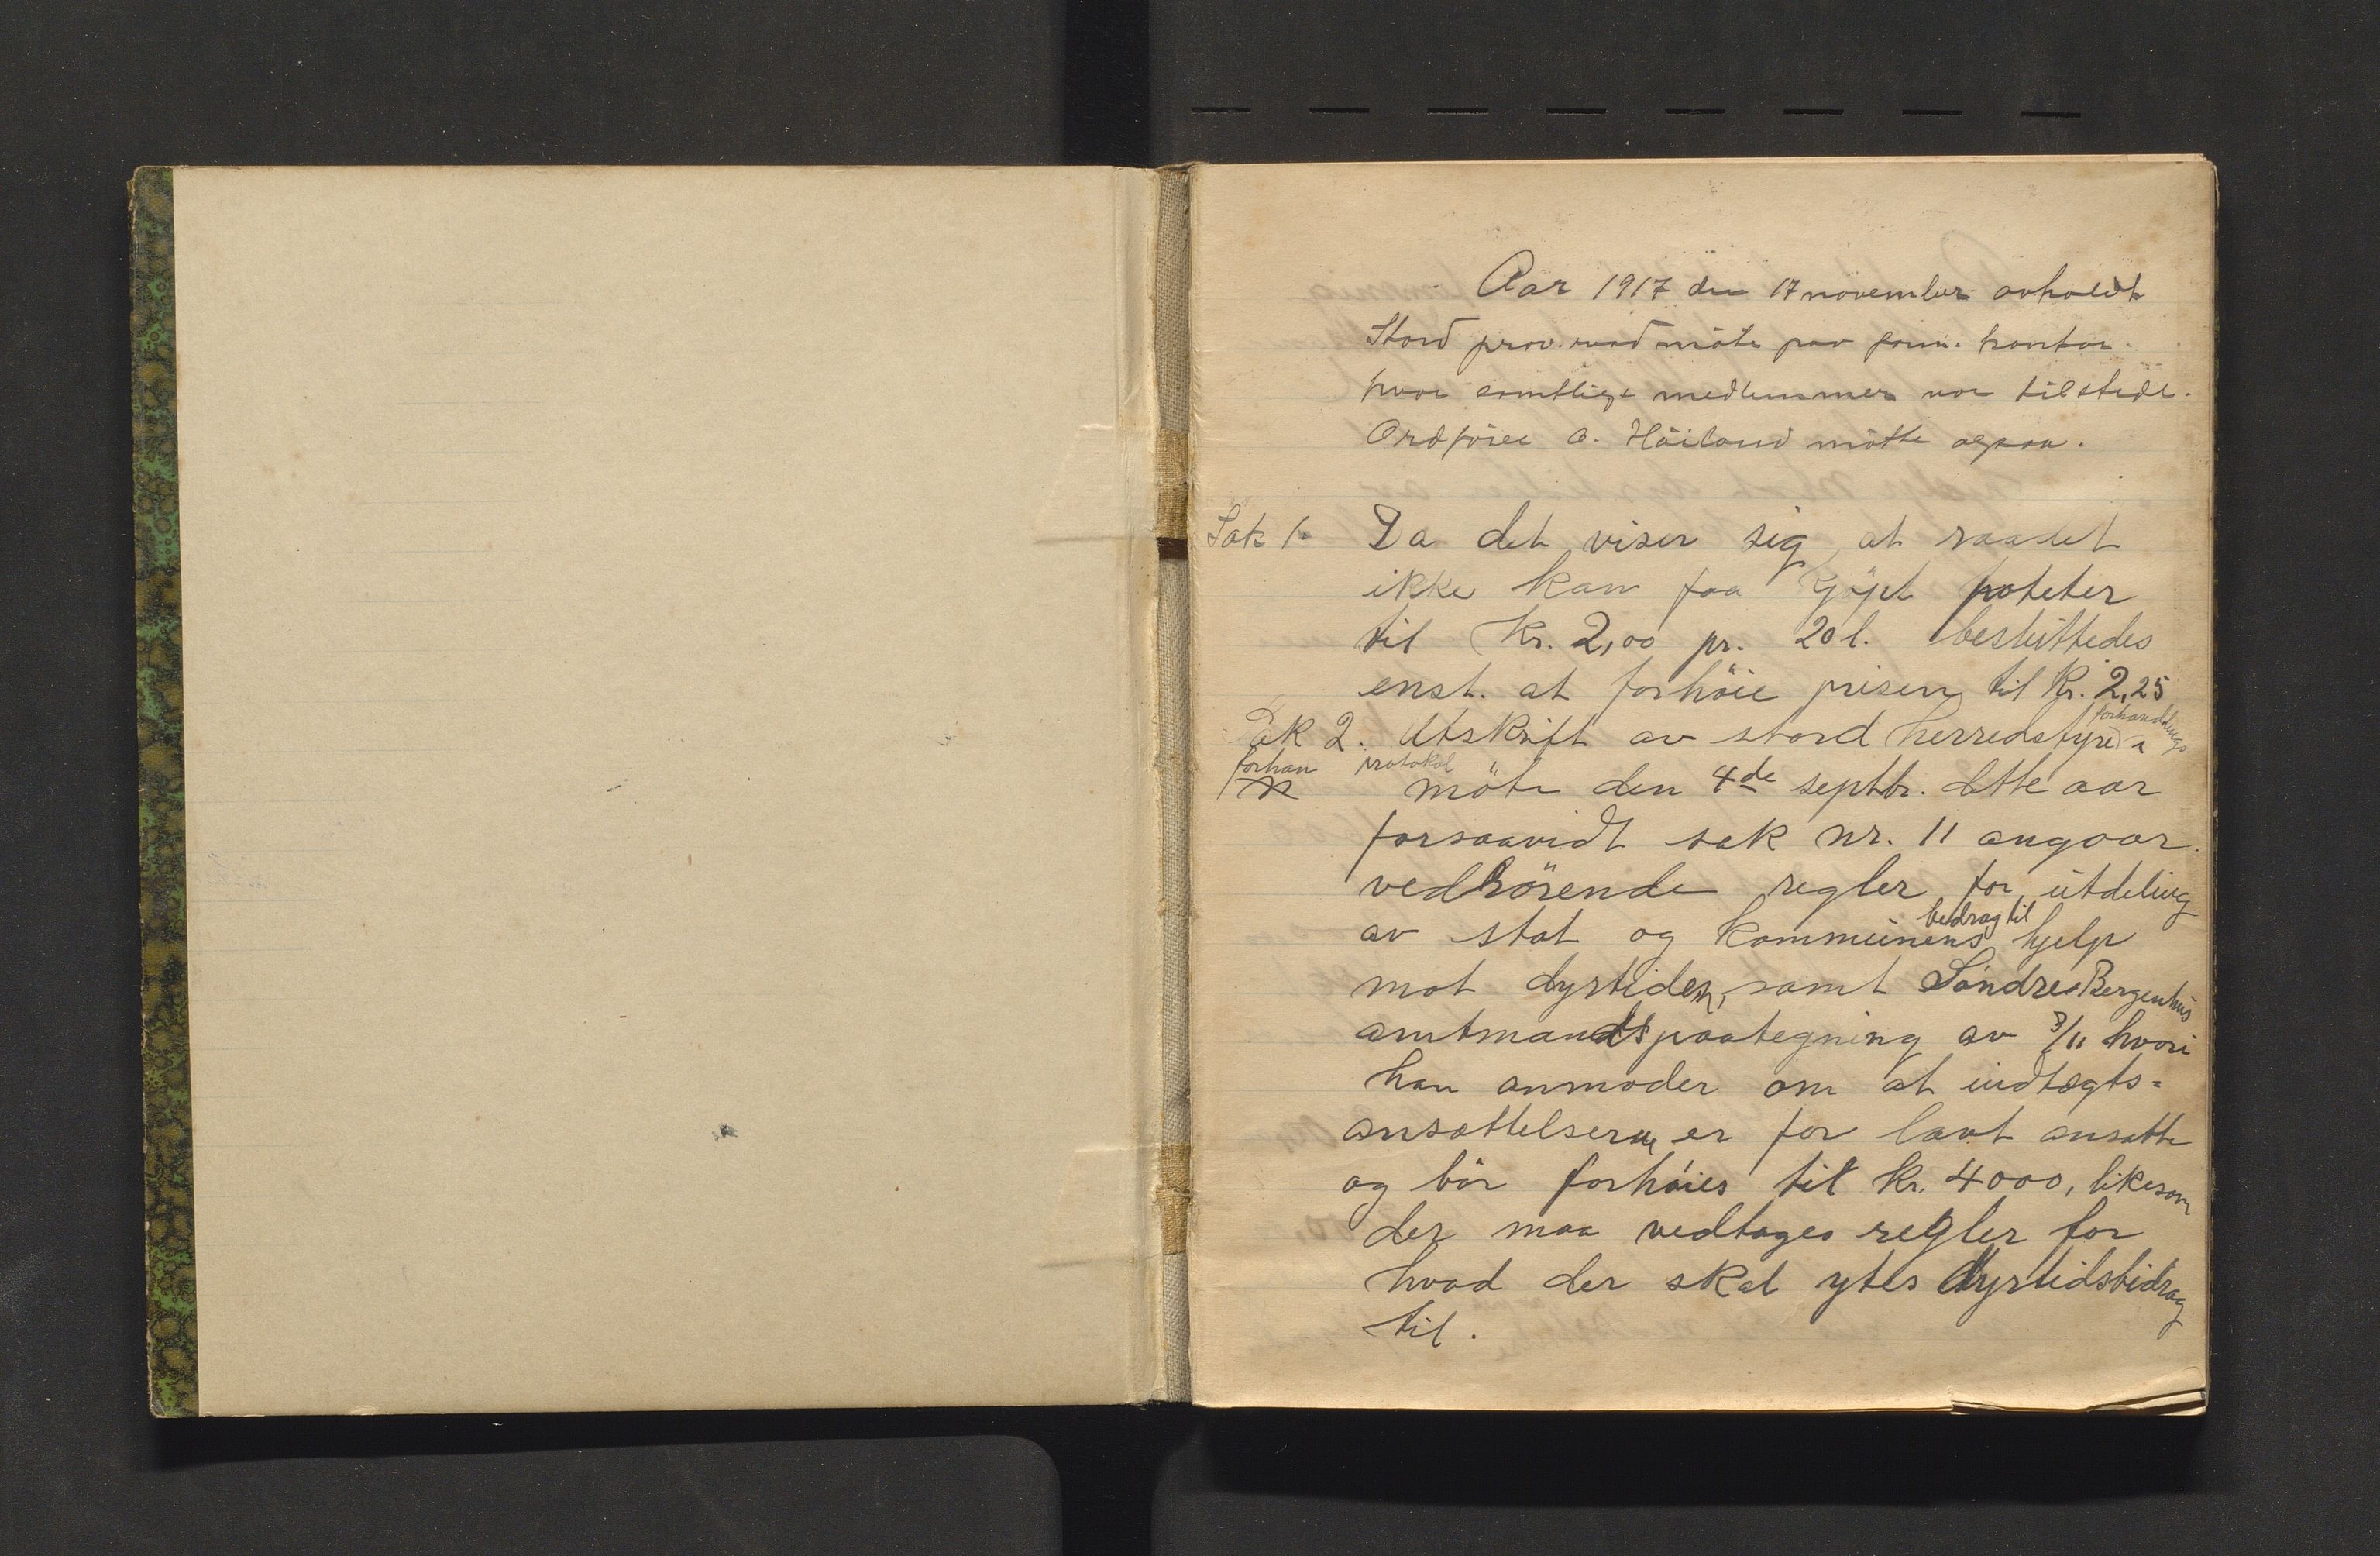 Aar 1917 den 17 november avholdt
Stord prov. raad möte paa form. kontor.
hvor samtlige medlemmer var tilstede.
Ordförer O. Höiland mötte ogsaa.
Sak 1. Da det viser sig, at raadet
ikke kan faa kjöpt poteter
til kr. 2,00 pr. 20 l. besluttedes
enst. at forhöie prisen til kr. 2,25
Sak 2. Utskrift av stord herredstyre forhandlings
forhan protokol
möte den 4de septbr. dette aar
forsaavidt sak nr. 11 angaar.
vedrörende regler for utdeling
av stat og kommunens bedrag til hjelp
mot dyrtiden, samt Söndre Bergenhus
amtmands paategning av 8/11 hvori
han anmoder om at indtægts-
ansættelserne er for lavt ansatte
og bör forhöies til kr. 4000, likesom
der maa vedtages regler for
hvad der skal ytes dyrtidsbidrag
til.